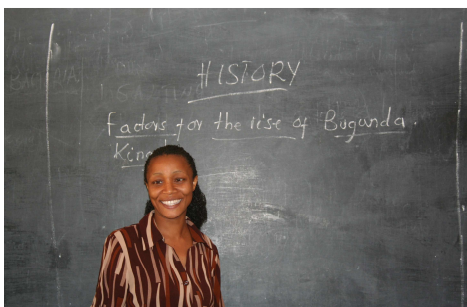 HISTORY
factors for the rise of Buganda.